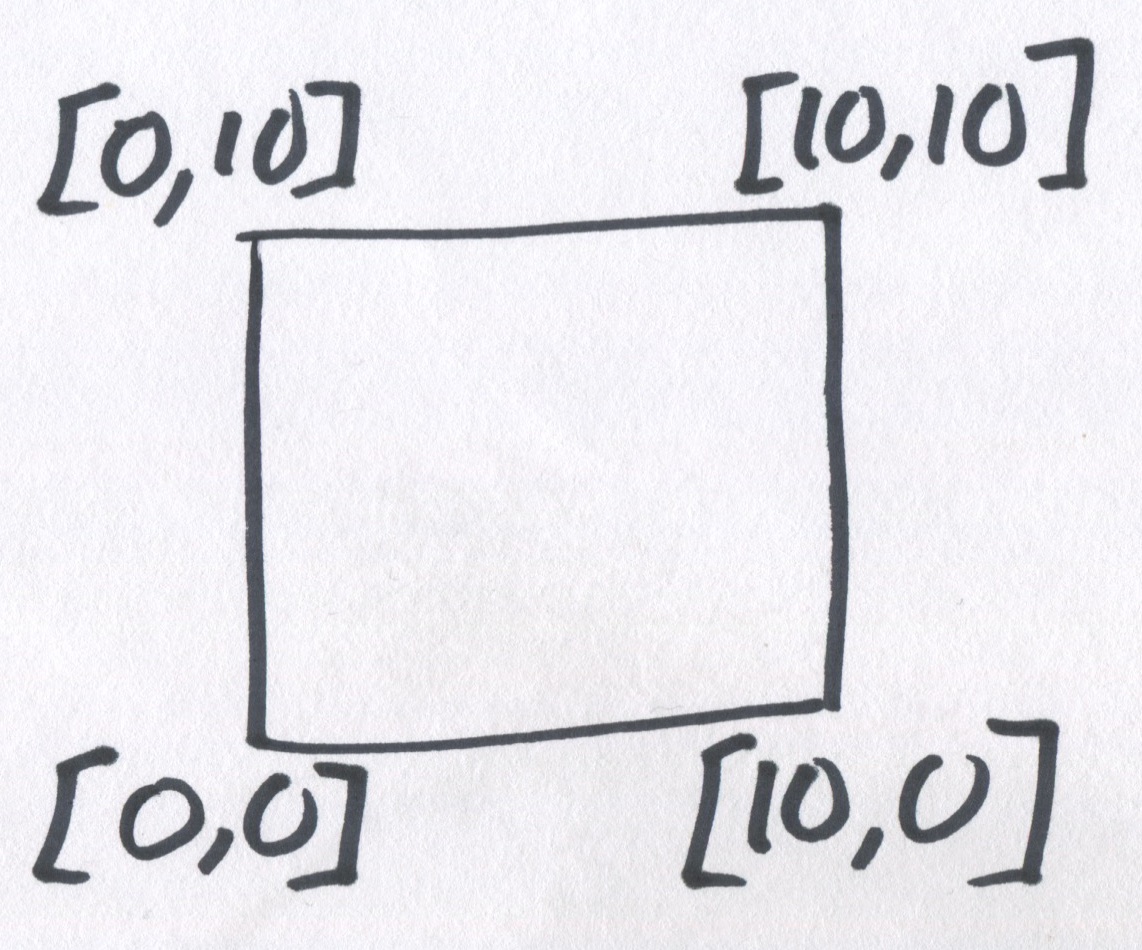 [0,10] [10,10]
[0,0] [10,0]